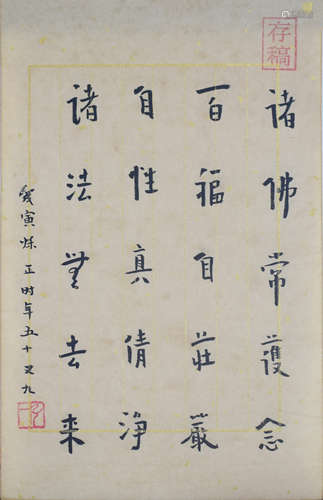 存稿
諸佛常護念
百福自莊嚴
自性真清淨
諸法無去来
寅 正时年五十又九